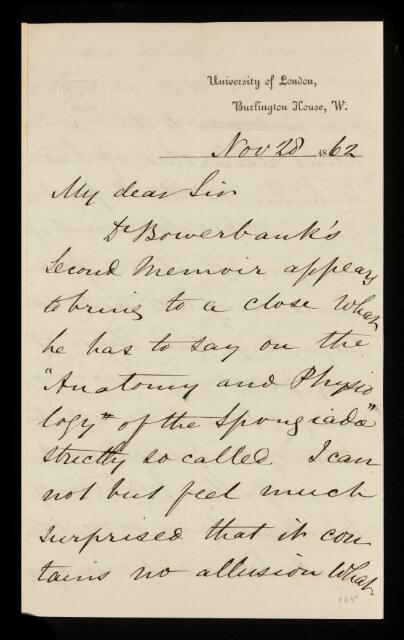 University of London,
Burlington House, W.
Nov 28 1862
My dear Sir
Dr Bowerbank's
Second Memoir appears
to bring to a close what
he has to say on the
"Anatomy and Physio
logy" of the Spongiadæ"
strictly so called I can
not but feel much
surprised that it con
tains no allusion what
125